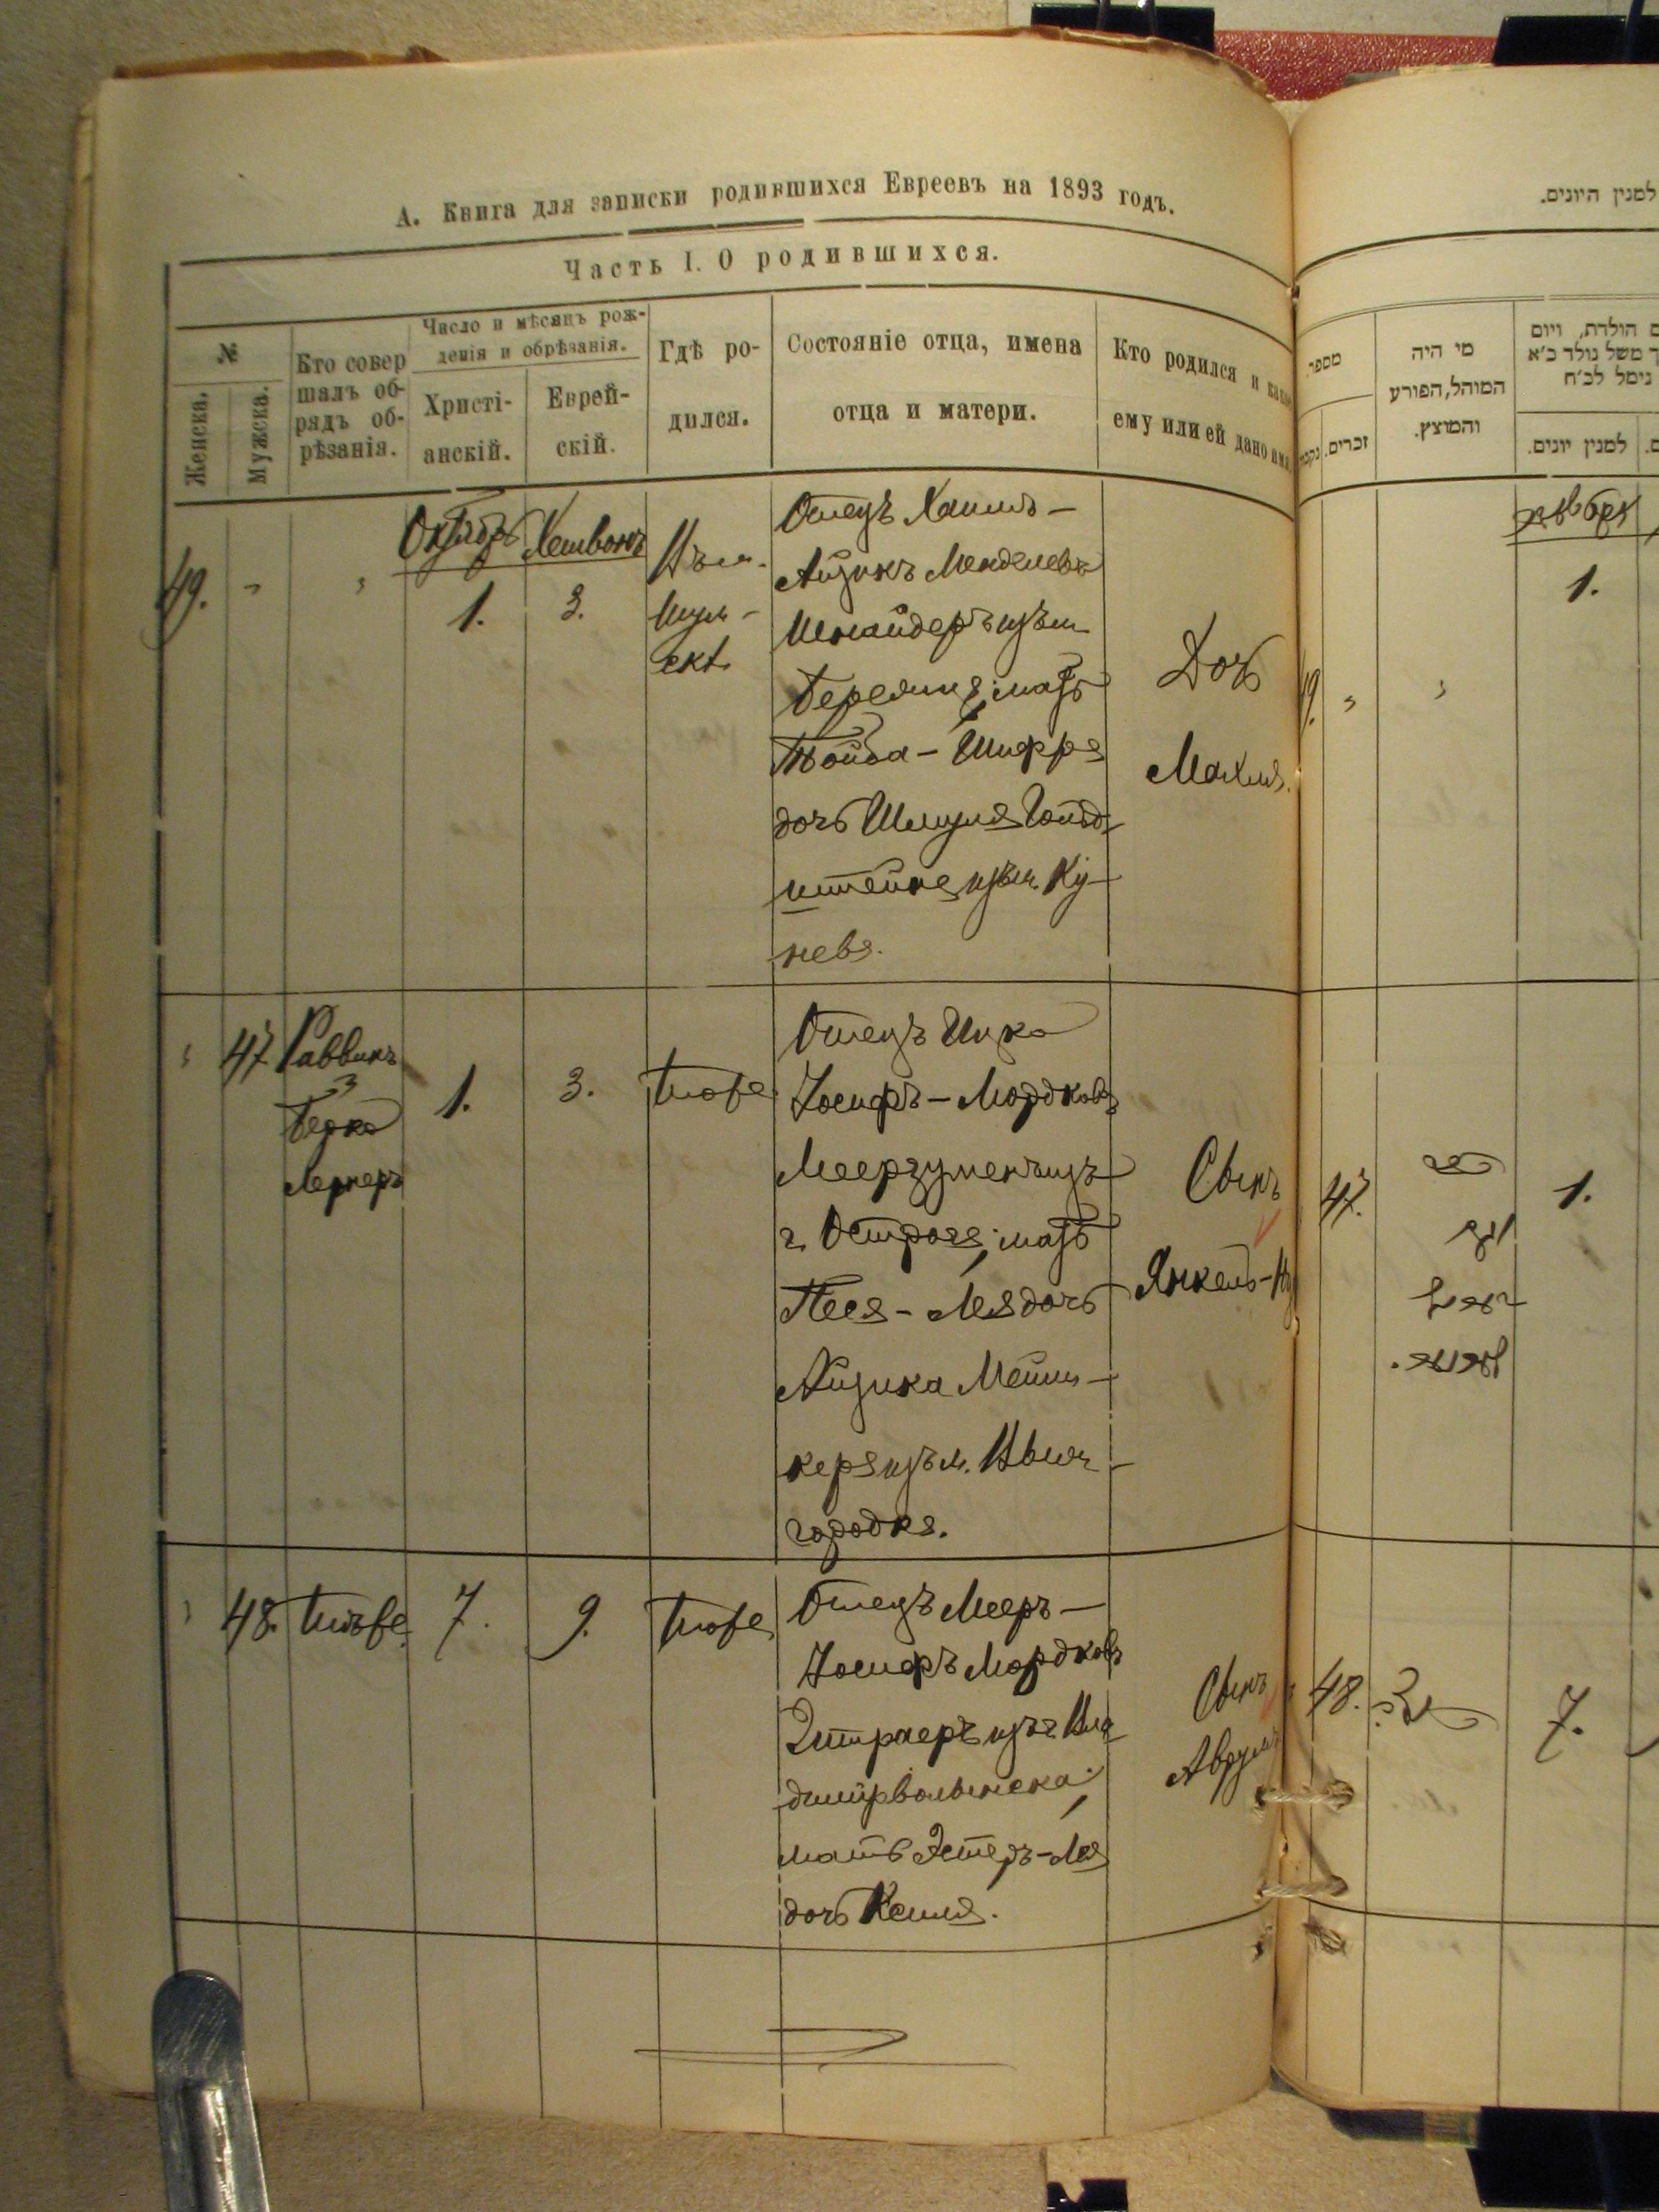 А. Книга для записки родившихся Евреевъ на 1893 годъ.
Часть I. О родившихся.
№
Женска.
Мужска.
Кто совер
шалъ об-
рядъ об-
рѣзанія.
Число и мѣсяцъ рож-
денія и обрѣзанія.
Христі-
анскій.
Еврей-
скій.
Гдѣ ро-
дился.
Состояніе отца, имена
отца и матери.
Кто родился и
ему или ей дано имя
49.
Октябрь
1.
Хешвонъ
3.
Въ м.
Отецъ Хаимъ-
Айзикъ Менделевъ
Шнайдеръ изъ м
Березны, мать
Тойба-Шифра
дочь Шмуля Гольд-
штейна изъ м. Ку-
нева.
Дочь
Махля.
47
Раввинъ
Берко
Лернеръ
1.
3.
Тоже
Отецъ Ицко
Іосифъ-Мордковъ
Меерзуменъ изъ
г. Острога, мать
Песя-Лея дочь
Айзика
кера изъ м. Выш-
городка.
Сынъ
Янкель-
48.
Тоже
7.
9.
Тоже
Отецъ Мееръ-
Іосифъ Мордковъ
изъ г Вла
димірволынска,
мать Эстеръ-Лея
дочь
Сынъ
Аврумъ
למנין היונים.
מספר
זכרים.
מי היה
המוהל, הפורע
והמוצץ.
הולדת, ויום
משל נולד כ"א
נימל לכ"ח
למנין יונים.
אקטאבער
1.
47.
1.
48.
7.